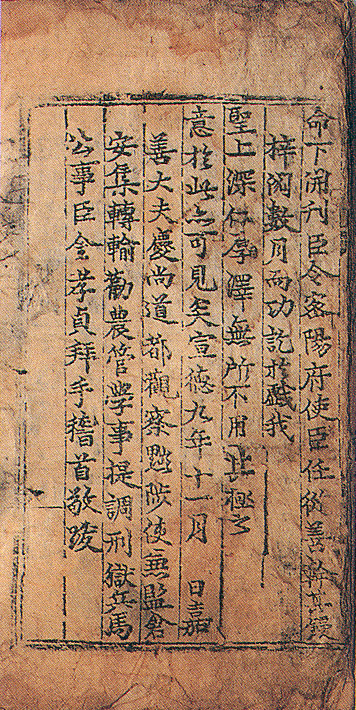 命下開刊臣令密陽府使臣任從善幹其鋟
梓閱數月而功訖於戲我
聖上深仁厚澤無所不用其極之
意於此亦可見矣宣德九年十一月 日嘉
善大夫慶尚道都觀察黜陟使兼監倉
安集轉輸勸農管學事提調刑獄兵馬
公事臣金孝貞拜手稽首敬跋